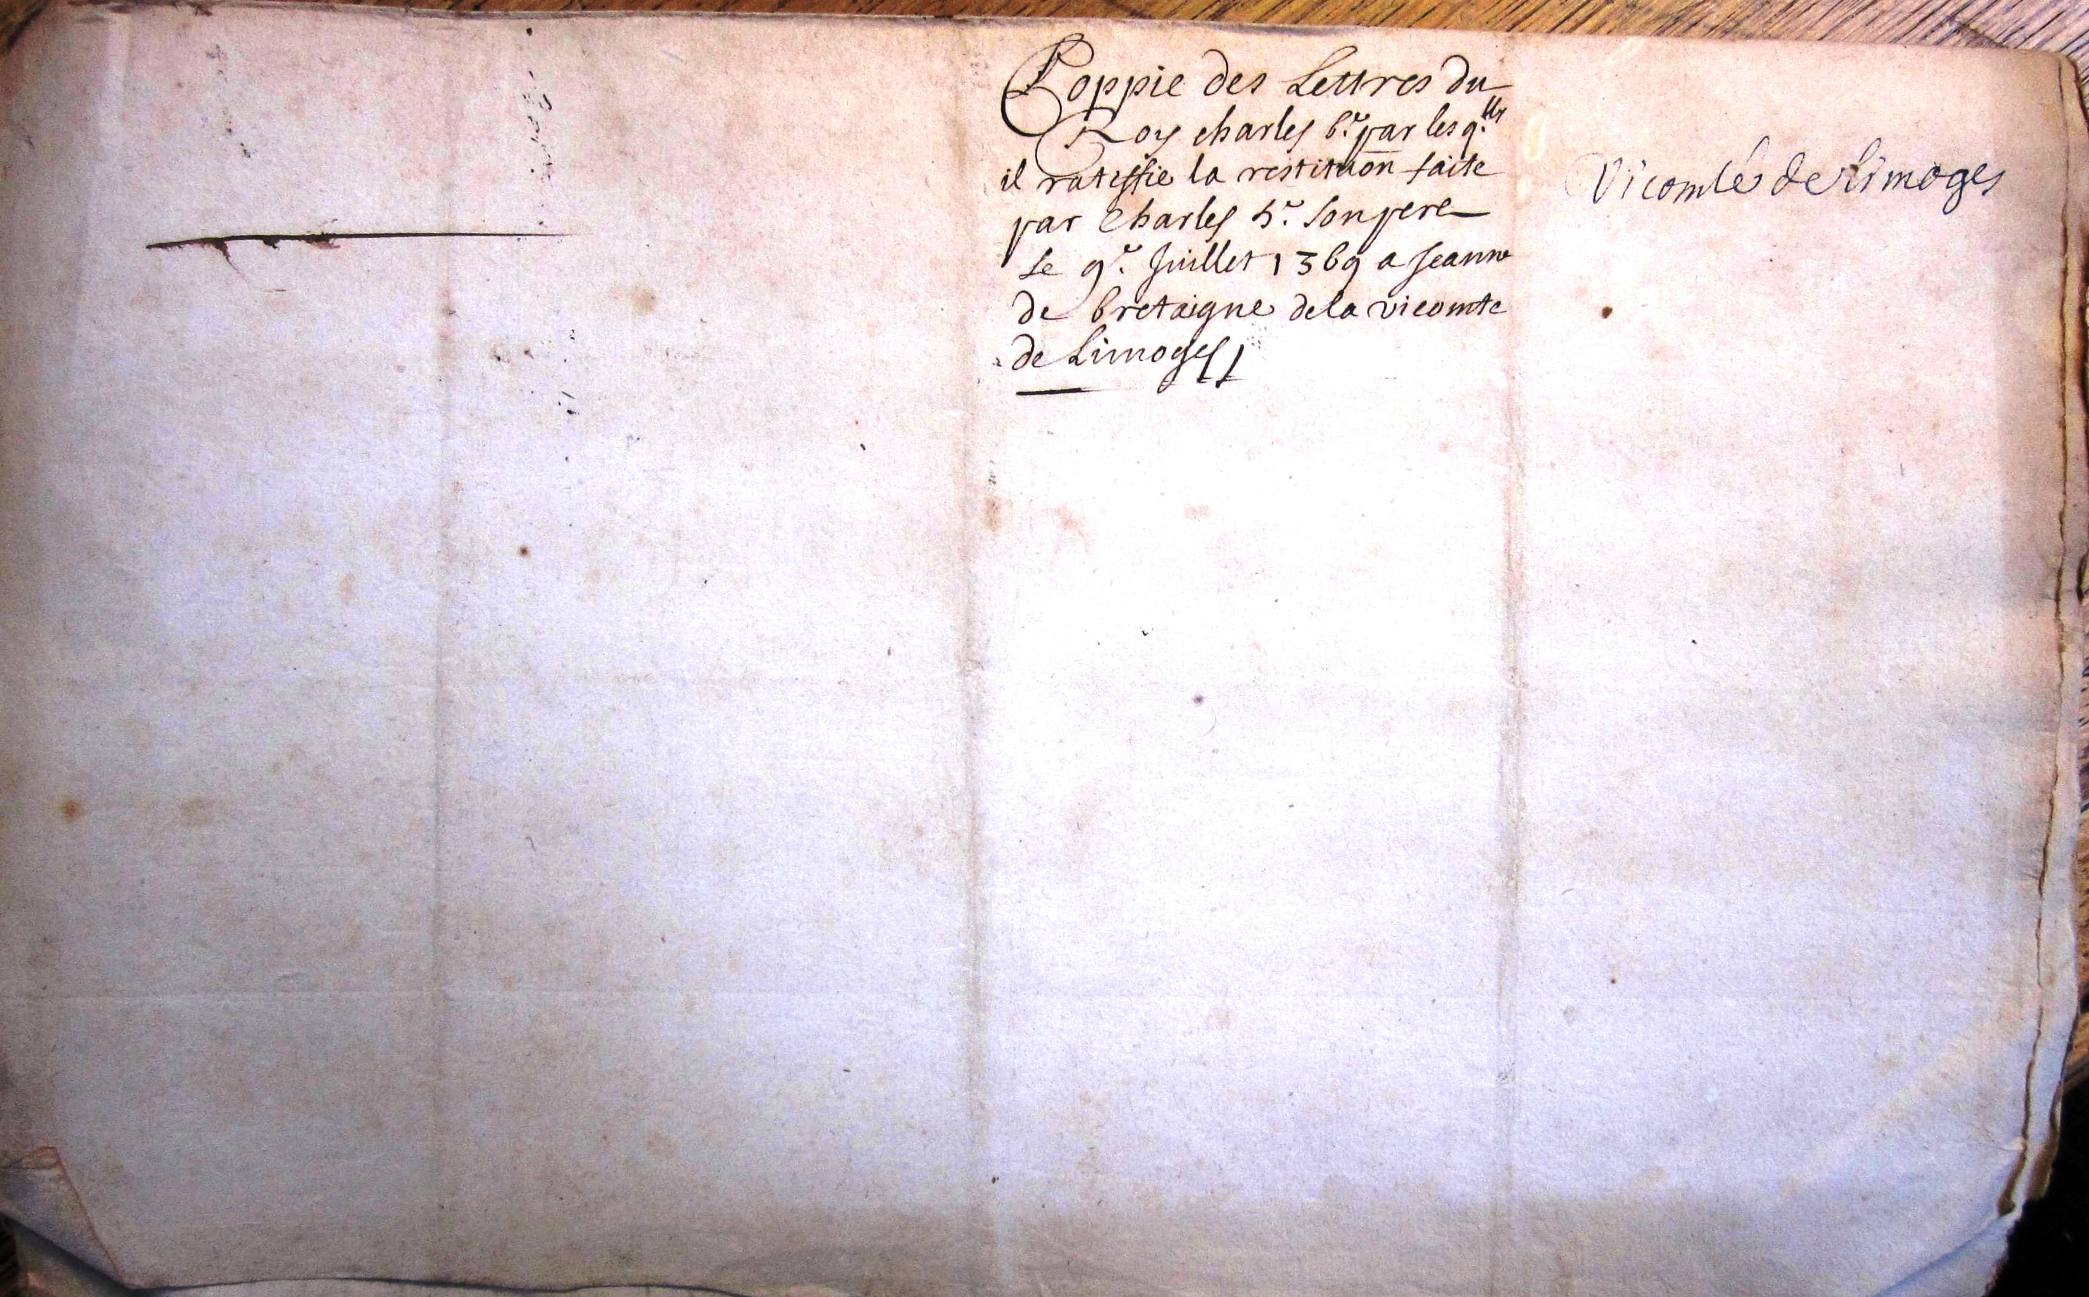 Coppie des Lettres du
Roy charles 6.e par lesq.lles
il ratiffie la restituon faite
par Charles 5.e son pere
Le 9.e Juillet 1369 a Jeanne
de bretaigne de la vicomte
de Limoges
Vicomté de Limoges